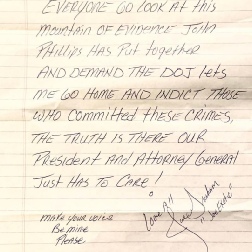 EVERYONE GO LOOK AT THIS
MOUNTAIN OF EVIDENCE JOHN
PHILLIPS HAS PUT TOGETHER
AND DEMAND THE DOJ LETS
ME GO HOME AND INDICT THOSE
WHO COMMITTED THESE CRIMES,
THE TRUTH IS THERE OUR
PRESIDENT AND ATTORNEY GENERAL
JUST HAS TO CARE!
Love All
Joe
"Joe Exotic"
MAKE YOUR VOICE
BE MINE
PLEASE